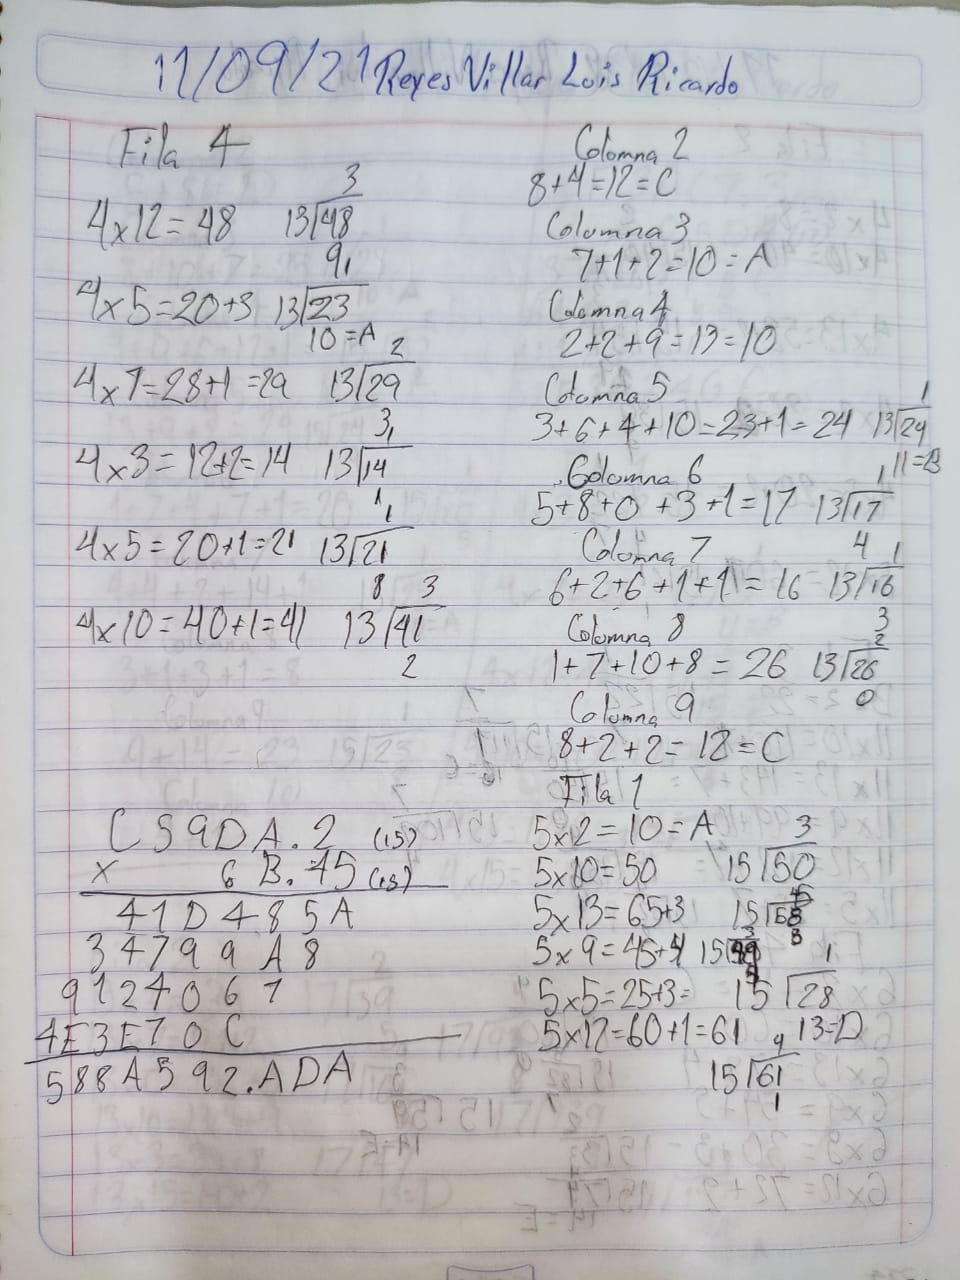 11/09/21 Reyes Villar Luis Ricardo
Fila 4
3
4x12=48 13/48
9,
4x5=20+3 13/23
10=A 2
4x7=28+1=29 13/29
3,
4x3=12+2=14 13/14
1
4x5=20+1=21 13/21
8 3
4x10=40+1=41 13/41
2
C59DA.2 (15)
x 6B.45 (15)
41D485A
34799A8
9124067
4E3E70C
588A592.ADA
Columna 2
8+4=12=C
Columna 3
7+1+2=10=A
Columna 4
2+2+9=13=10
Columna 5 1
3+6+4+10=23+1=24 13/24
11=B
Columna 6 1
5+8+0+3+1=17 13/17
Columna 7 4 1
6+2+6+1+1=16 13/16
Columna 8 3
2
1+7+10+8=26 13/26
0
Columna 9
8+2+2=12=C
Fila 1
5x2=10=A 3
5x10=50 15/50
5x13=65+3 15/68
8
5x9=45+4 15/49
1
5x5=25+3= 15/28
5x12=60+1=61 4 13=D
15/61
1